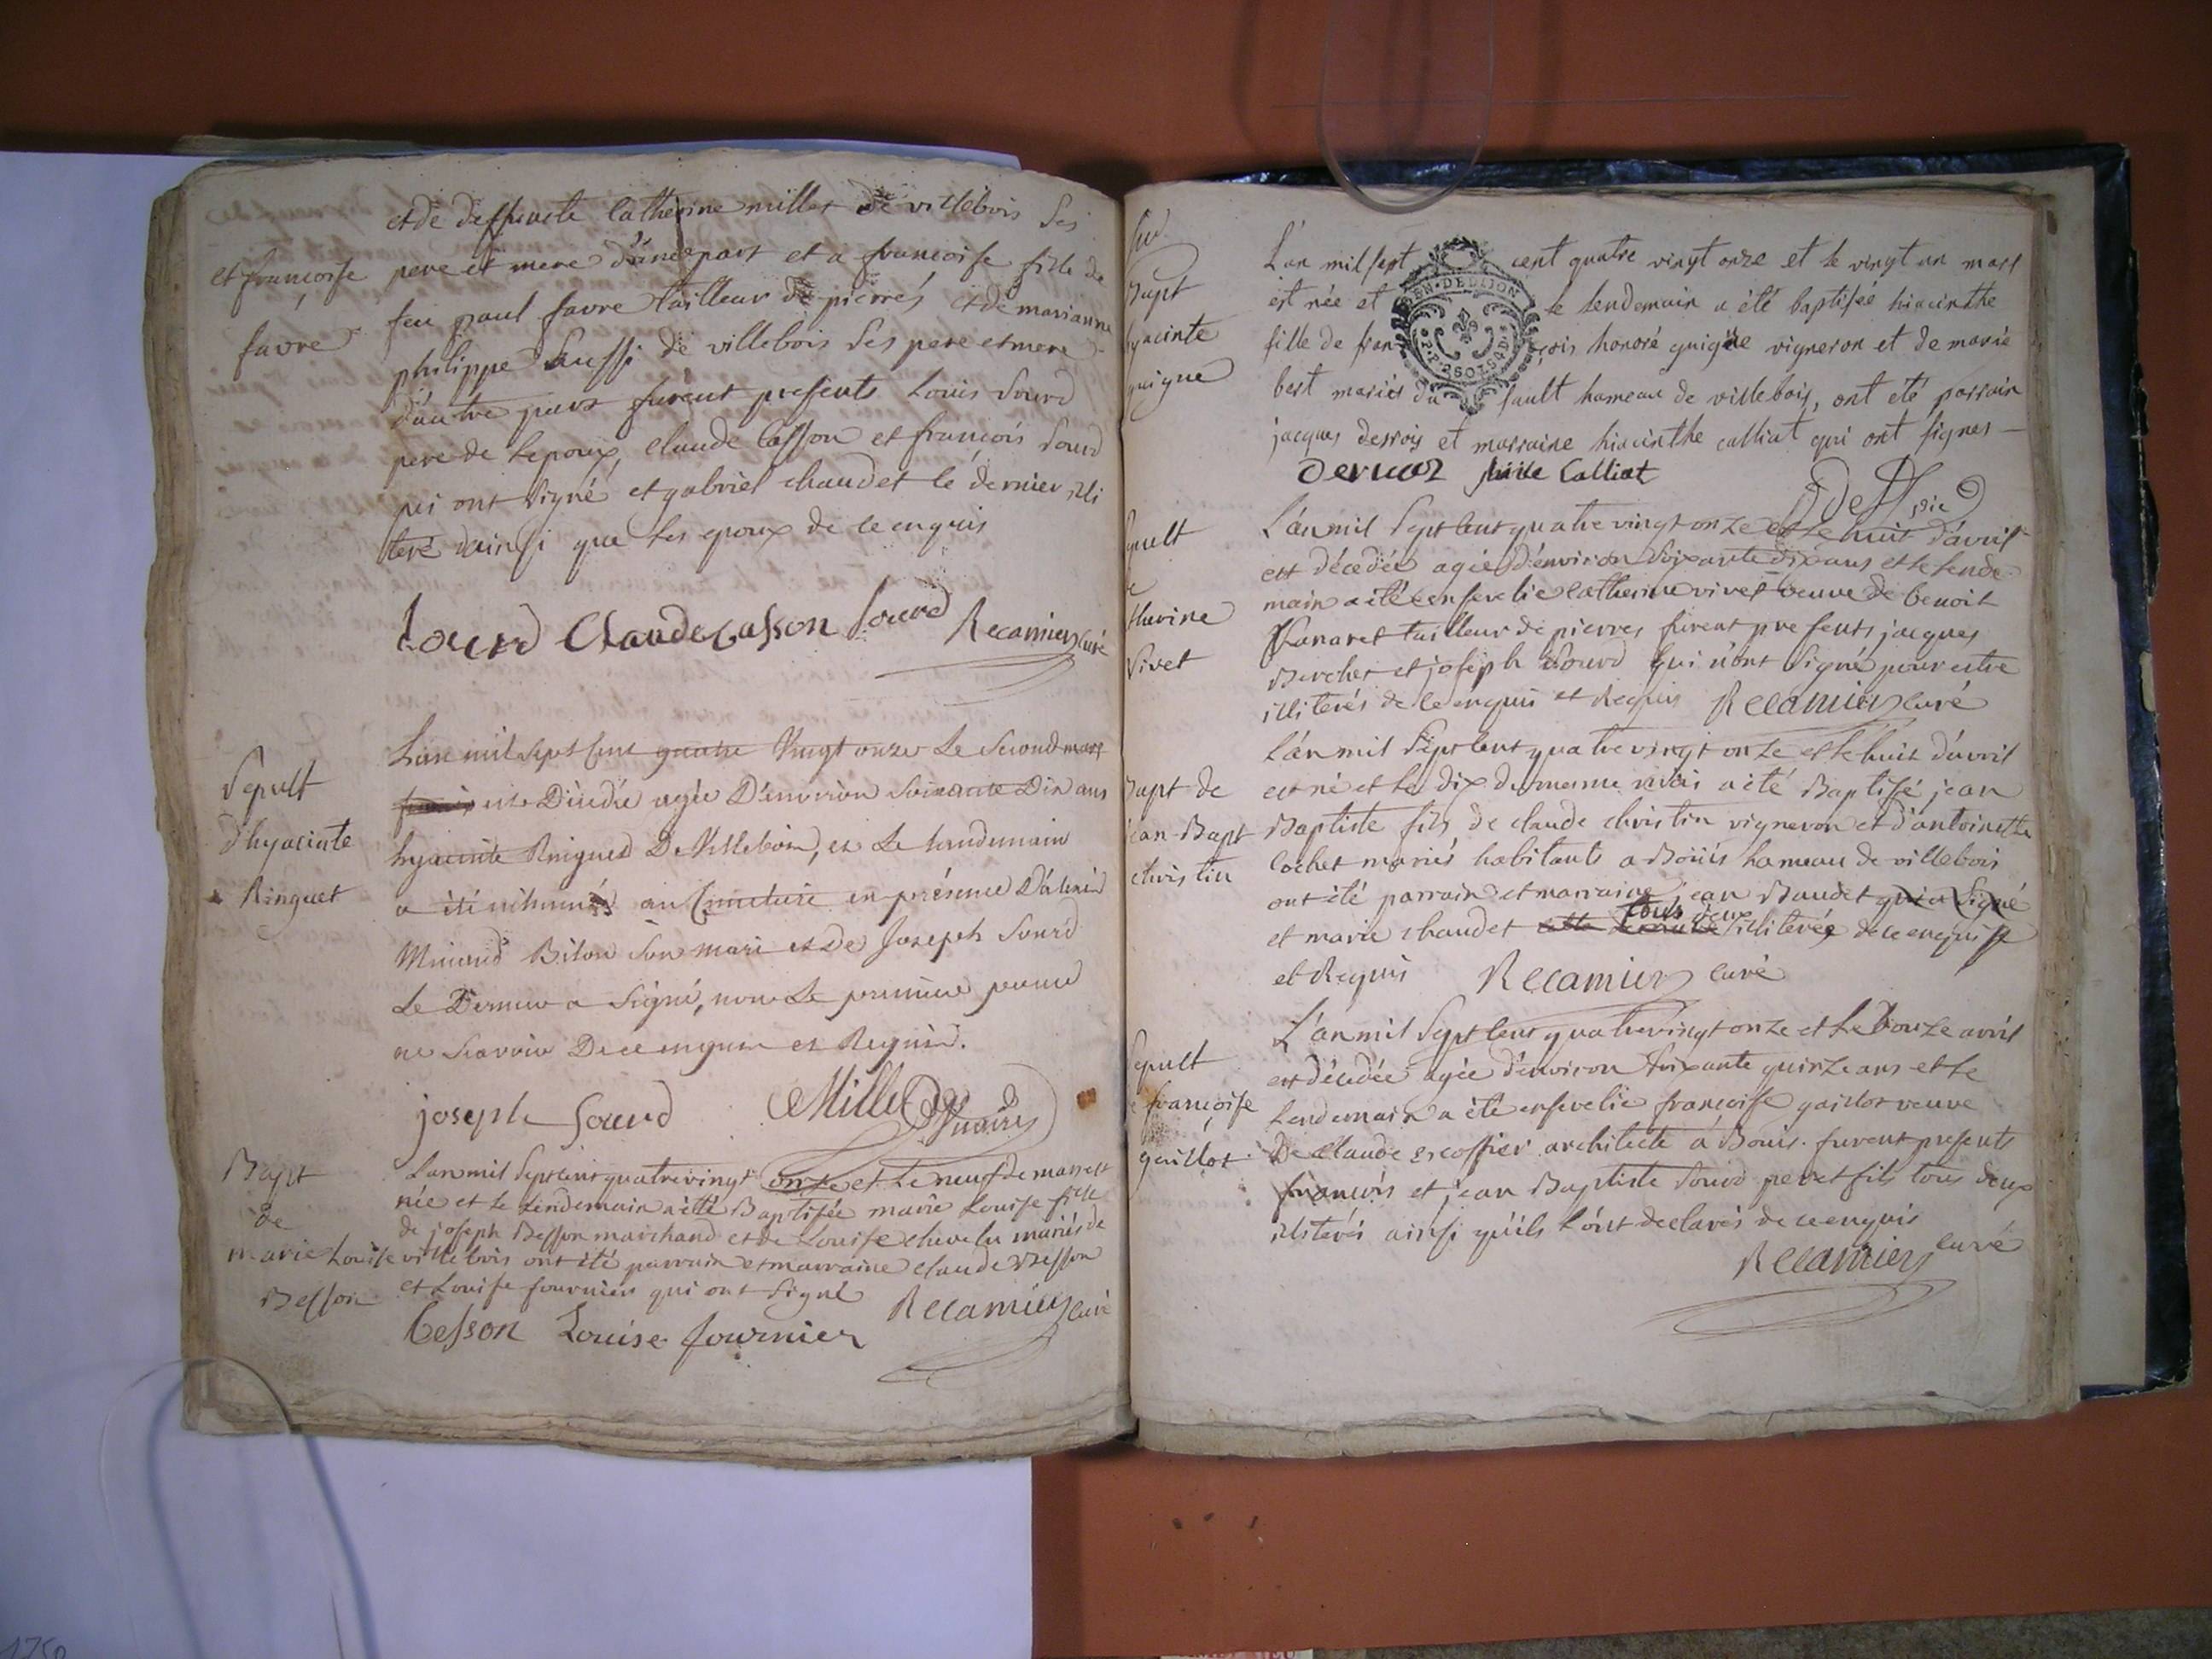 et de deffuncte Catherine millet de villebois Ses
et françoise
favre
pere et mere d'une part et a francoise fille de
feu paul favre tailleur de pierres et de marianne
philippe aussi de villebois Ses pere et mere
d'autre part furent presents Louis Sourd
pere de lepoux, Claude Casson et francois Sourd
qui ont signé et gabriel chaudet le dernier illi
teré ainsi que les epoux de ce enquis
Sourd Claude Casson Sourd Recamier curé
Sepult
d'hyacinte
Ringuet
L'an mil sept cent quatre vingt onze le second mars
est Décédée agée D'environ soixante Dix ans
hyacinte Ringuet De Villebois, et le landemain
a été inhumée au Cimetiere en présence
Bilon son mari et De Joseph Sourd
le Dernier a signé, non le premier pour
ne scavoir De ce enquis et Requis.
joseph Sourd Millet
Bapt
de
marie Louise
Besson
L'an mil sept cent quatre vingt onze et le neuf de mars est
née et le lendemain a été Baptisée marie Louise fille
de joseph Besson marchand et de Louise chevelu mariés de
villebois ont été parrain et marraine claude Besson
et Louise fournier qui ont signé Recamier curé
besson Louise fournier
Bapt
hyacinte
guigue
L'an mil sept cent quatre vingt onze et le vingt un mars
est née et le lendemain a été baptisée hiacinthe
fille de françois honoré guigue vigneron et de marie
best mariés du sault hameau de villebois, ont été parrain
jacques derrois et marraine hiacinthe calliat qui ont signes
GEN. DE DIJON
calliat
Sepult
Catherine
Vivet
L'an mil Sept cent quatre vingt onze et le huit d'avril
est décedée agée d'environ soixante dix ans et le lende
main a été ensevelie catherine vivet veuve de benoit
tailleur de pierres furent presents jacques
Berchet et joseph Sourd qui n'ont signé pour estre
illiterés de ce enquis et Requis Recamier curé
Bapt de
jean-Bapt
christin
L'an mil Sept cent quatre vingt onze et le huit d'avril
est né et le dix du meme mois a été Baptisé jean
Baptiste fils de claude christin vigneron et d'antoinette
Cochet mariés habitants a Boüis hameau de villebois
ont été parrain et marraine jean Baudet qui a signé
et marie chaudet tous deux illiterés de ce enquis
et Requis Recamier curé
Sepult
de françoise
gaillot
L'an mil Sept cent quatre vingt onze et le douze avril
est décedée agée d'environ soixante quinze ans et le
Lendemain a été ensevelie françoise gaillot veuve
De Claude escoffier architecte a Bouis. furent presents
françois et jean Baptiste Sourd pere et fils tous deux
illiterés ainsi qu'ils l'ont declarés de ce enquis
Recamier curé